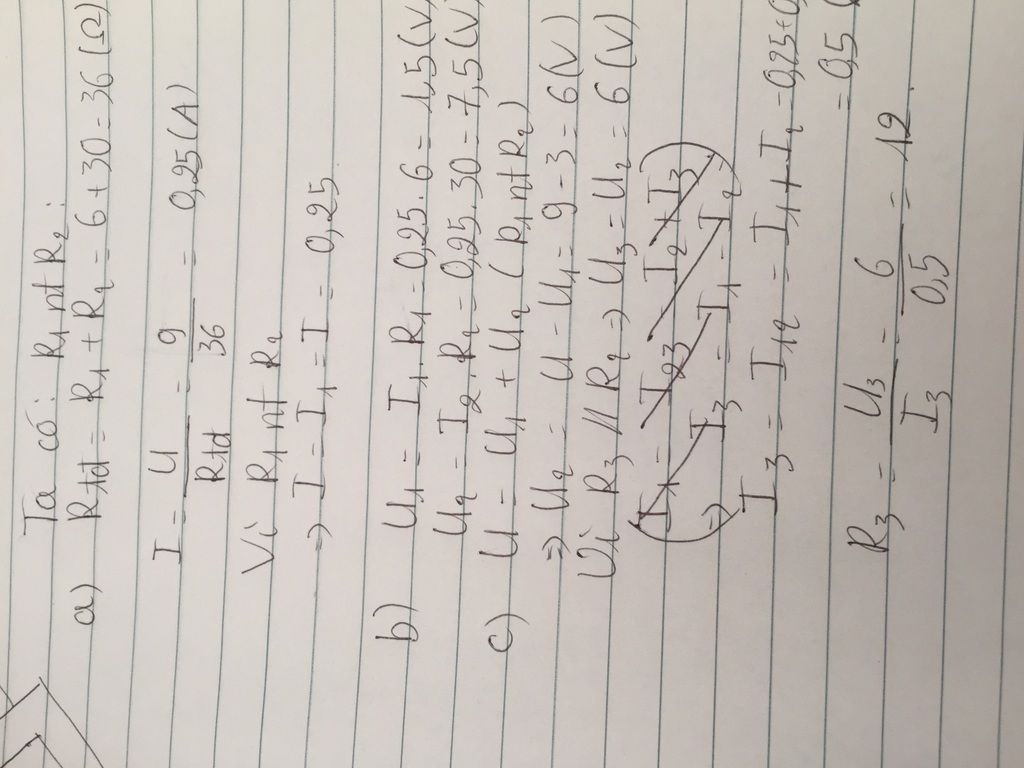 Ta có: R1 nt R2:
a) Rtđ = R1 + R2 = 6 + 30 = 36 (Ω)
I = U/Rtđ = 9/36 = 0,25 (A)
Vì R1 nt R2
=> I = I1 = I = 0,25
b) U1 = I1.R1 = 0,25.6 = 1,5 (V)
U2 = I2.R2 = 0,25.30 = 7,5 (V)
c) U = U1 + U2 (R1 nt R2)
=> U2 = U - U1 = 9 - 3 = 6 (V)
Vì R3 // R2 => U3 = U2 = 6 (V)
(I1 = I23 = I2 + I3
=> I3 = I1 - I2)
I3 = I12 = I1 + I2 = 0,25 + 0,
= 0,5
R3 = U3/I3 = 6/0,5 = 12.